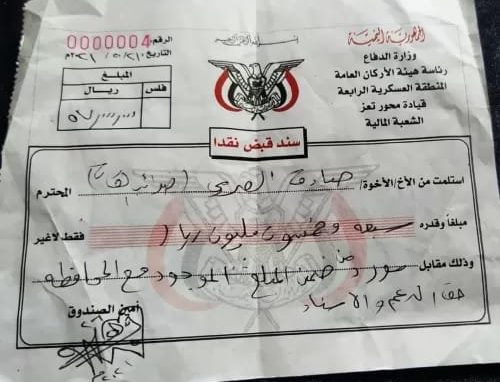 الجمهورية اليمنية
وزارة الدفاع
رئاسة هيئة الأركان العامة
المنطقة العسكرية الرابعة
قيادة محور تعز
الشعبة المالية
الرقم: 0000004
التاريخ:
المبلغ
ريال فلس
سند قبض نقدا
استلمت من الأخ/الأخوة/ صادق المحترم
مبلغا وقدره سبعه وخمسون مليون ريال فقط لاغير
وذلك مقابل من ضمن المبلغ الموجود مع المحافظه
حق الدعم والاسناد
أمين الصندوق